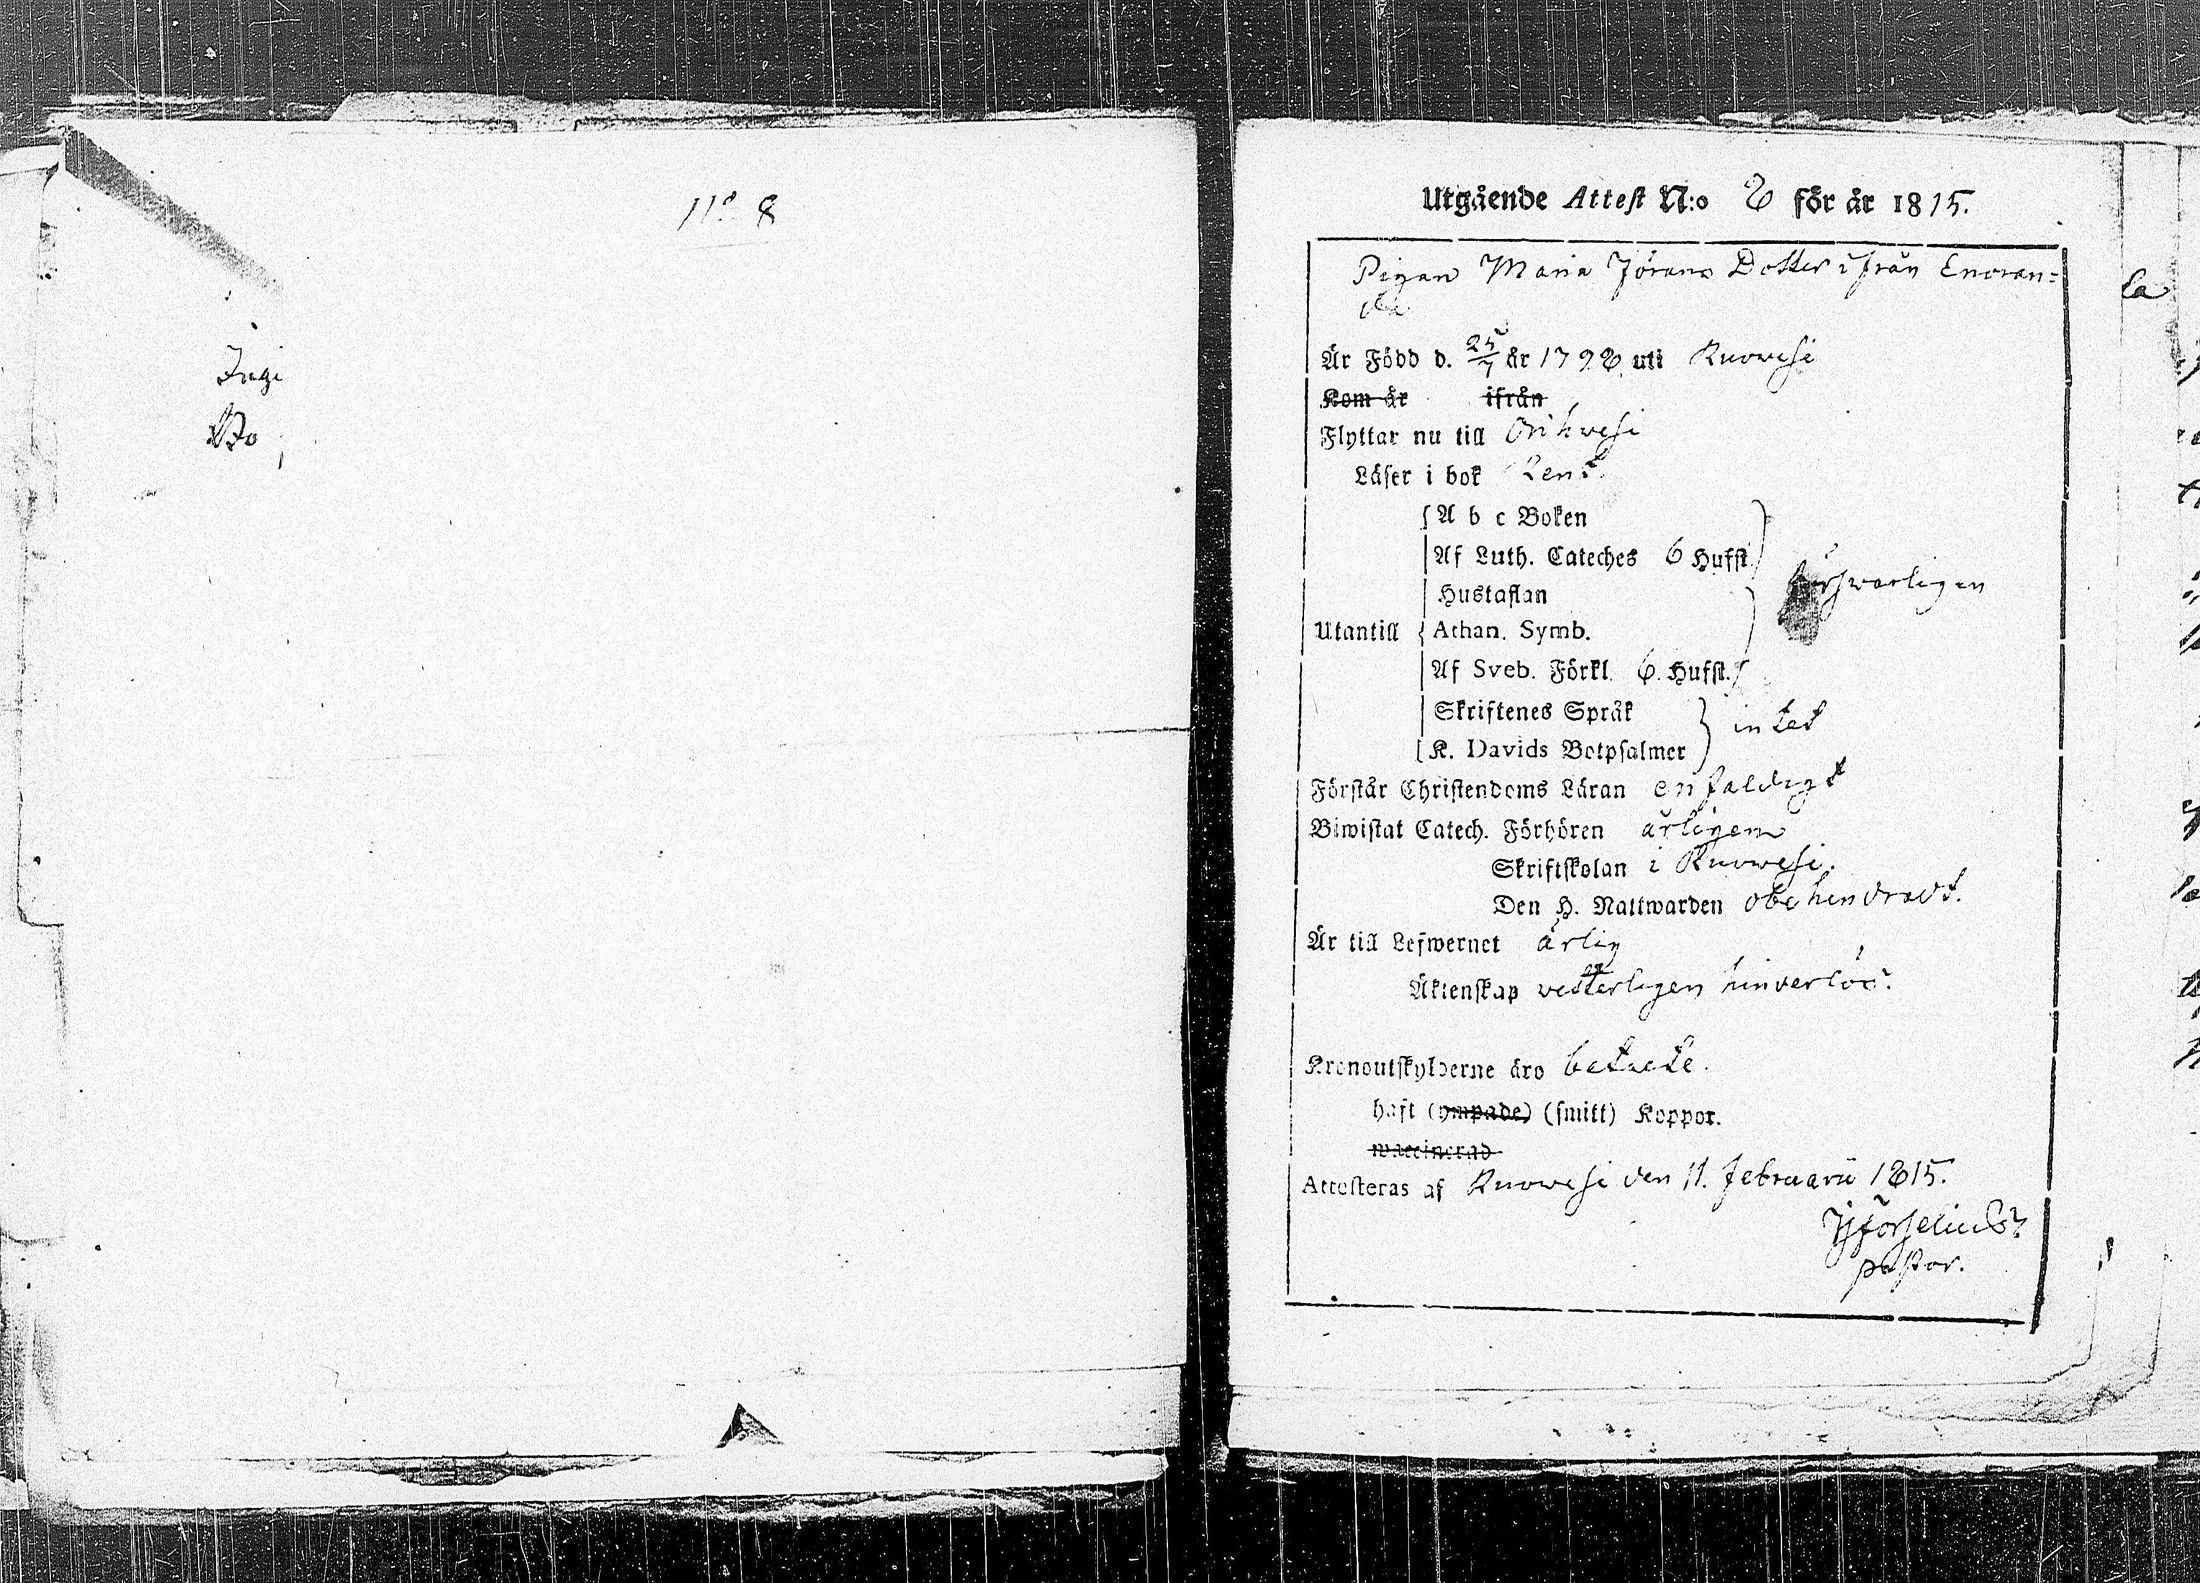 N:o 8
Utgående Attest N:o 8 för år 1815.
Pigan Maria Jörans Dotter ifrån Enoran=
da
Är Född d. 25/7 år 1798 uti Ruowesi
Kom år ifrån
Flyttar nu till Orihwesi
Läser i bok Rent.
A b c Boken
Af Luth. Cateches 6 Hufst.
Hustaflan
försvarligen
Utantill Athan. Symb.
Af Sveb. Förkl. 6. Hufst.
Skriftenes Språk
intet
K. Davids Botpsalmer
Förstår Christendoms Läran enfaldigt
Biwistat Catech. Förhören årligen
Skriftskolan i Ruowesi.
Den H. Nattwarden obehindradt.
Är till Lefwernet ärlig
Äktenskap hinderlös.
Kronoutskylderne äro betalte.
haft (ympade) (smitt) Koppor.
waccinerad
Attesteras af Ruowesi den 11. Februarii 1815.
pastor.